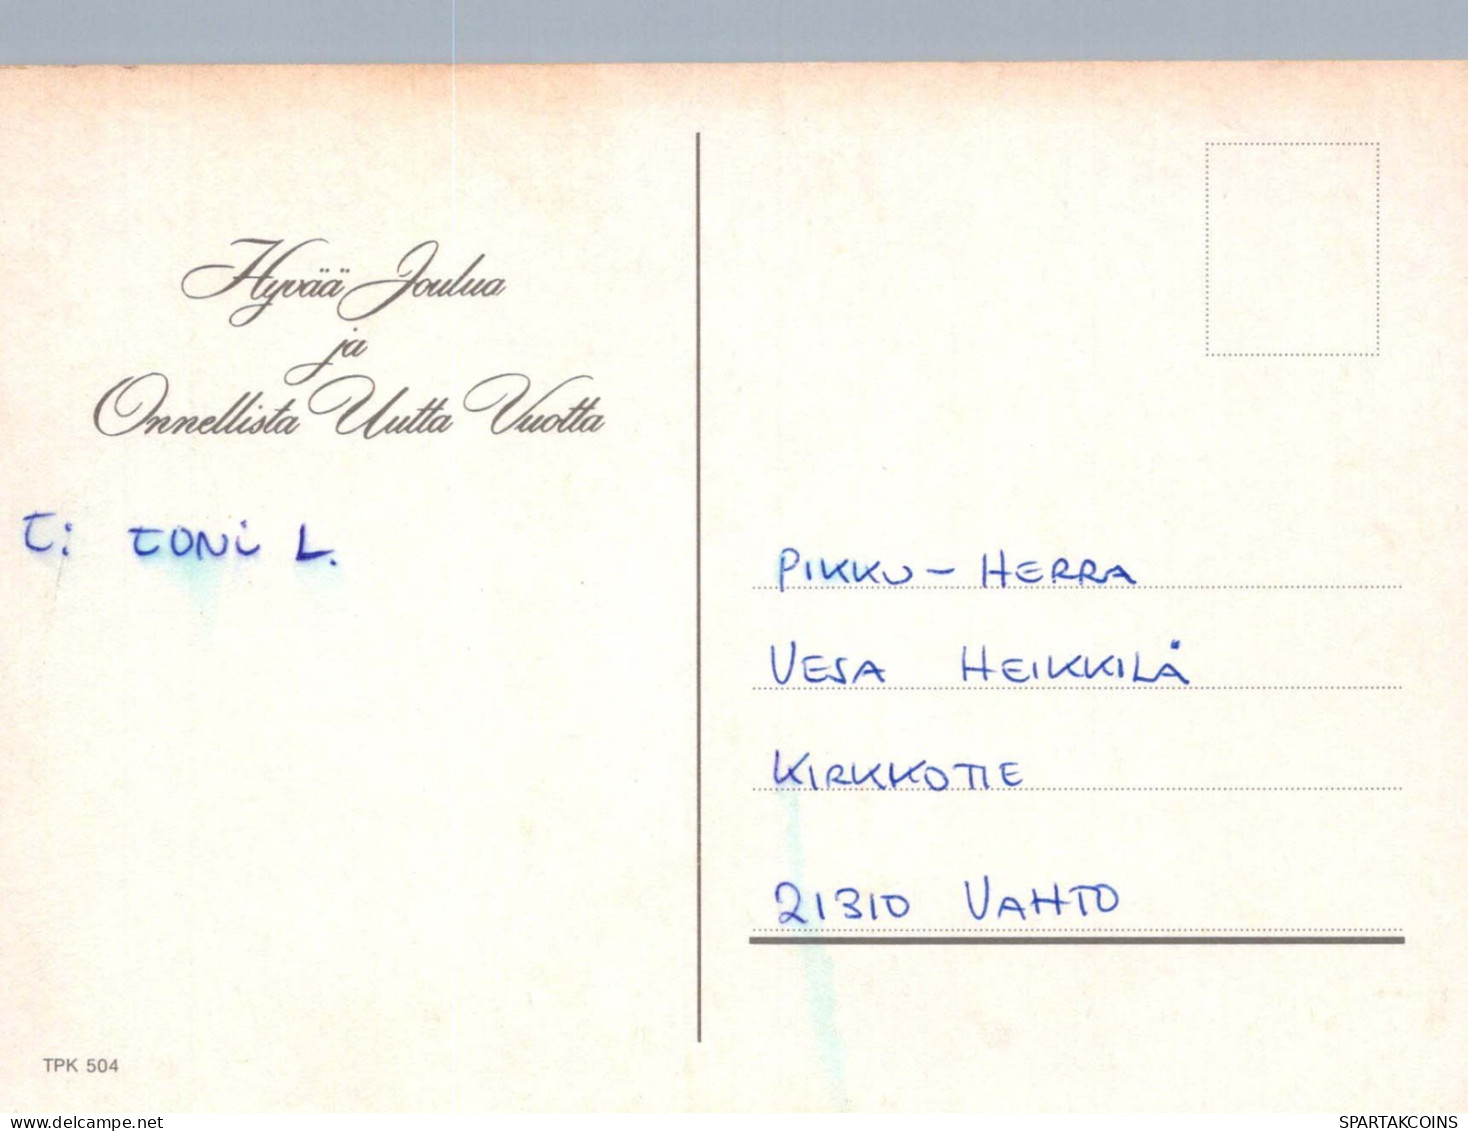 Hyvää Joulua
ja
Onnellista Uutta Vuotta
T: TONI L.
TPK 504
PIKKU-HERRA
VESA HEIKKILÄ
KIRKKOTIE
21310 VAHTO
SPARTAKCOINS